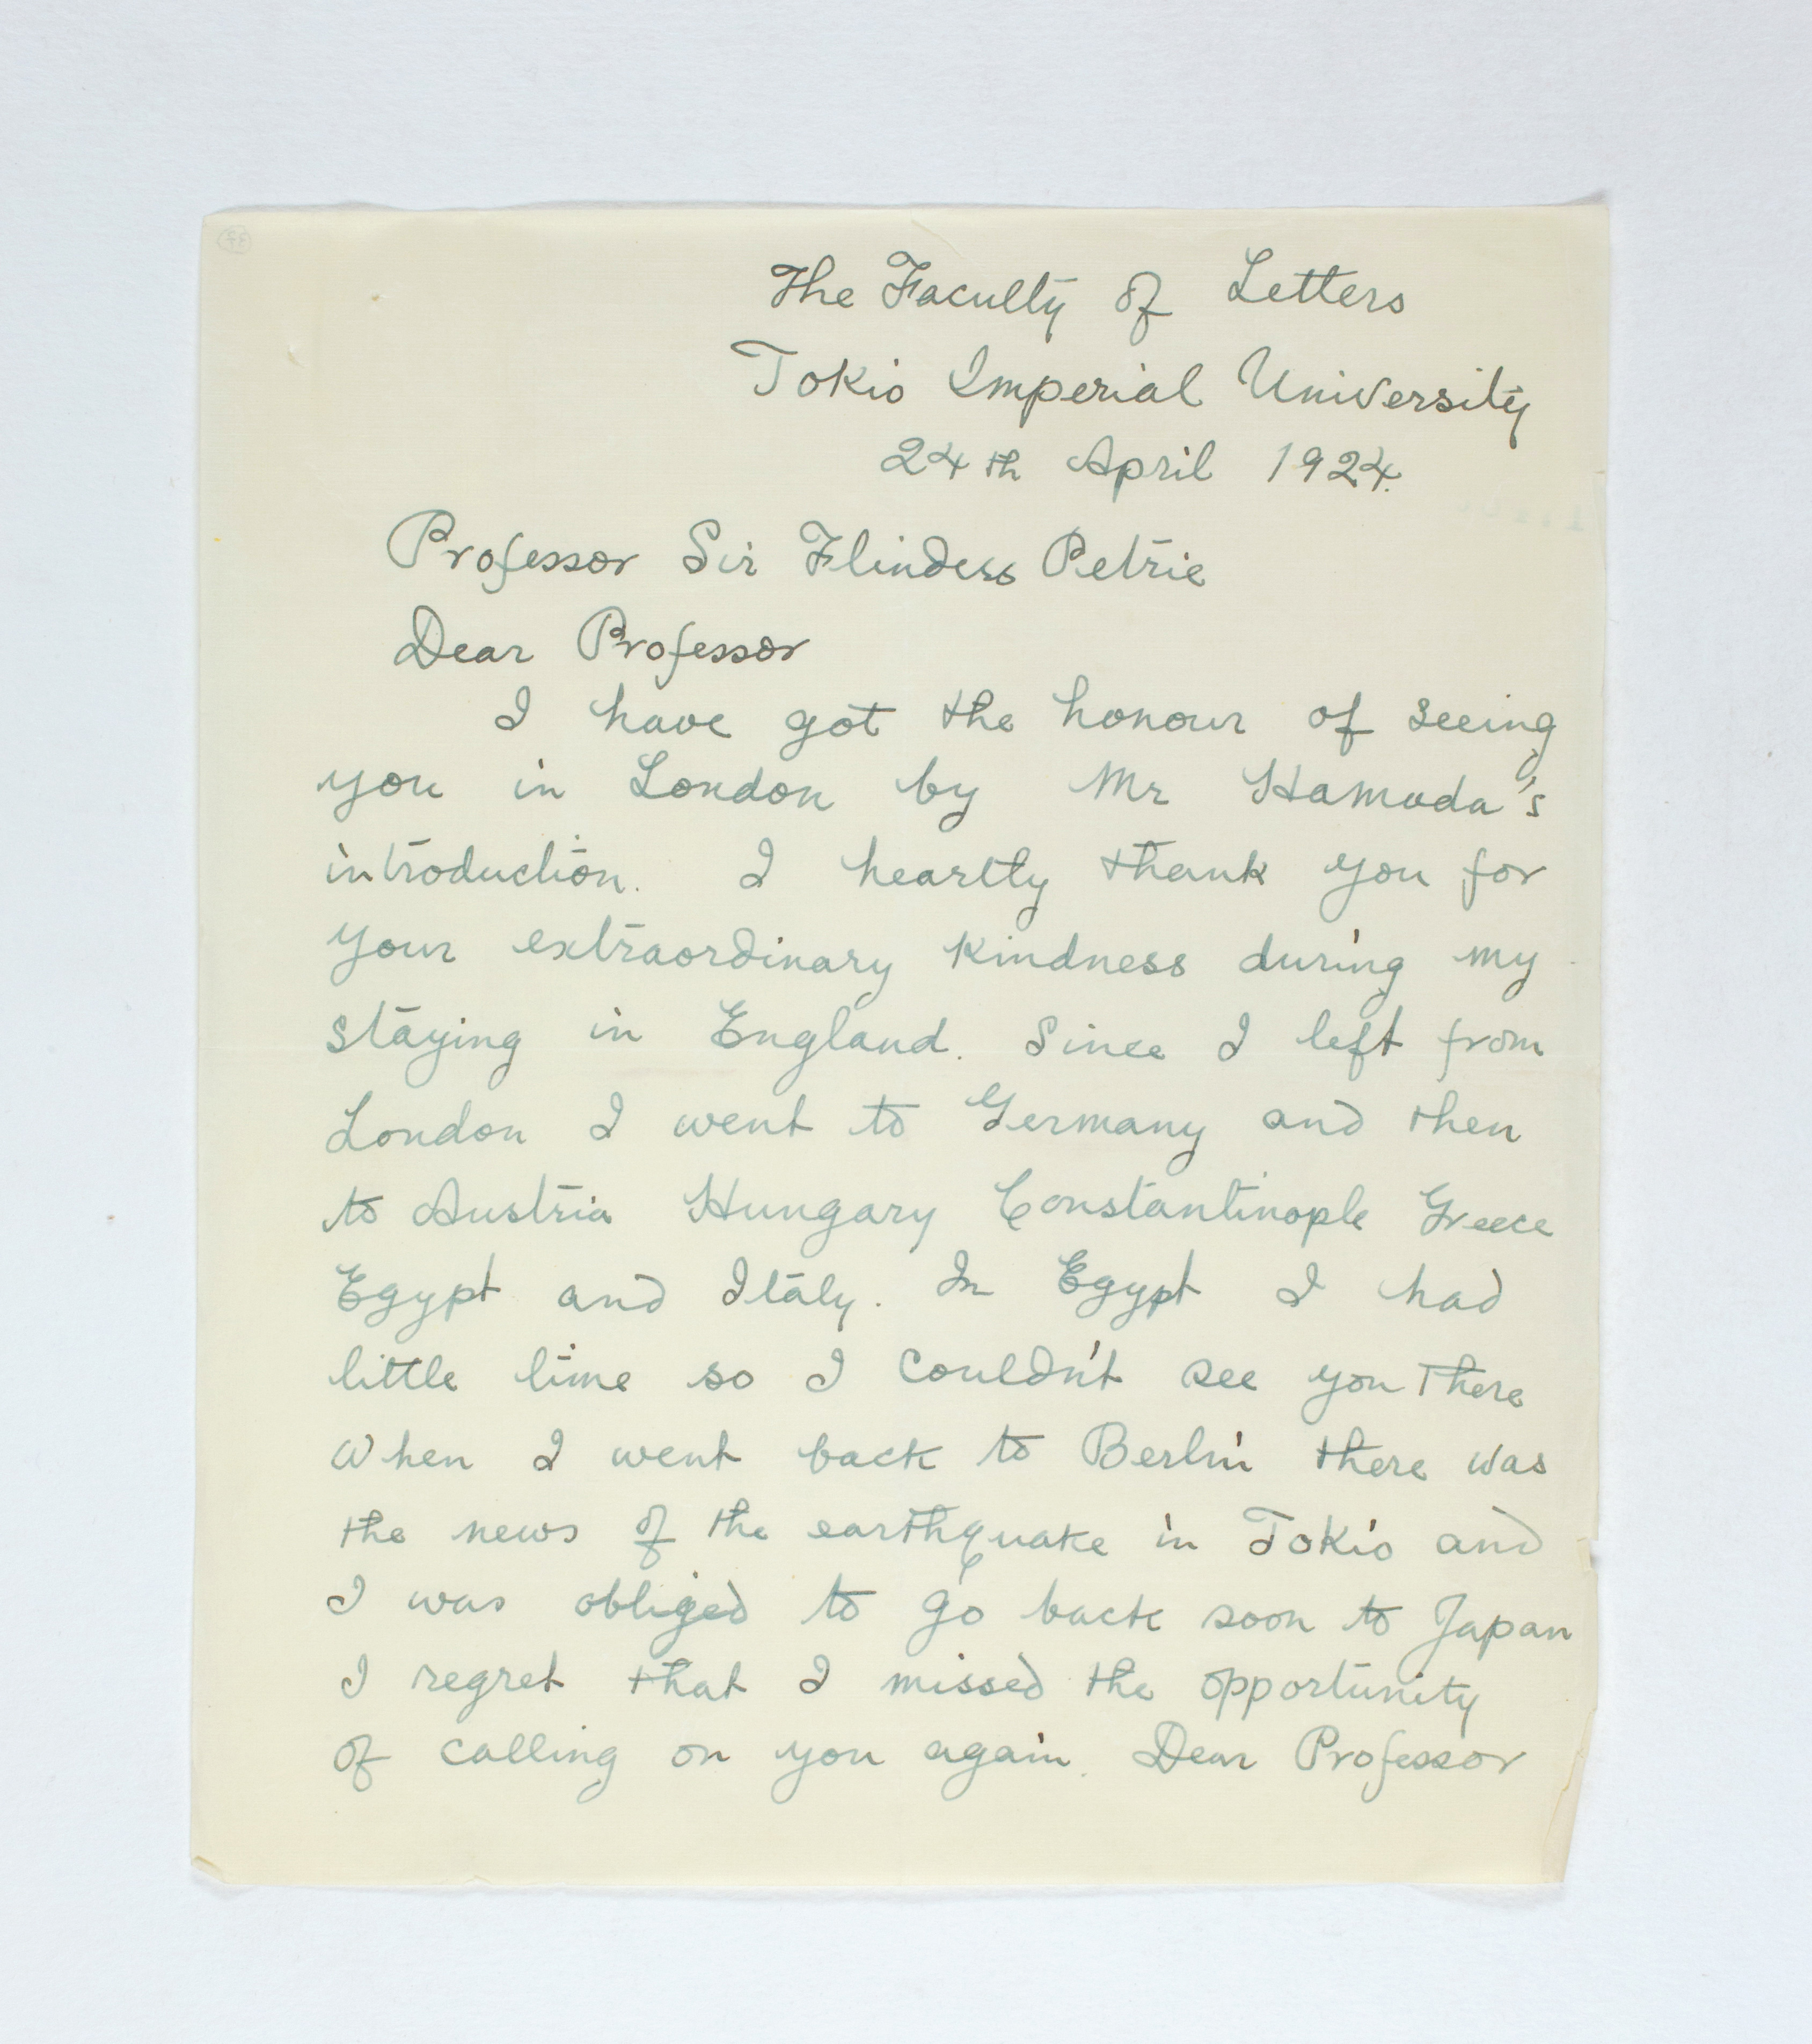 The Faculty of Letters
Tokio Imperial University
24th April 1924.
Professor Sir Flinders Petrie
Dear Professor
I have got the honour of seeing
you in London by Mr Hamada's
introduction. I heartly thank you for
your extraordinary kindness during my
staying in England. Since I left from
London I went to Germany and then
to Austria Hungary Constantinople Greece
Egypt and Italy. In Egypt I had
little time so I couldn't see you there
When I went back to Berlin there was
the news of the earthquake in Tokio and
I was obliged to go back soon to Japan
I regret that I missed the opportunity
of calling on you again. Dear Professor